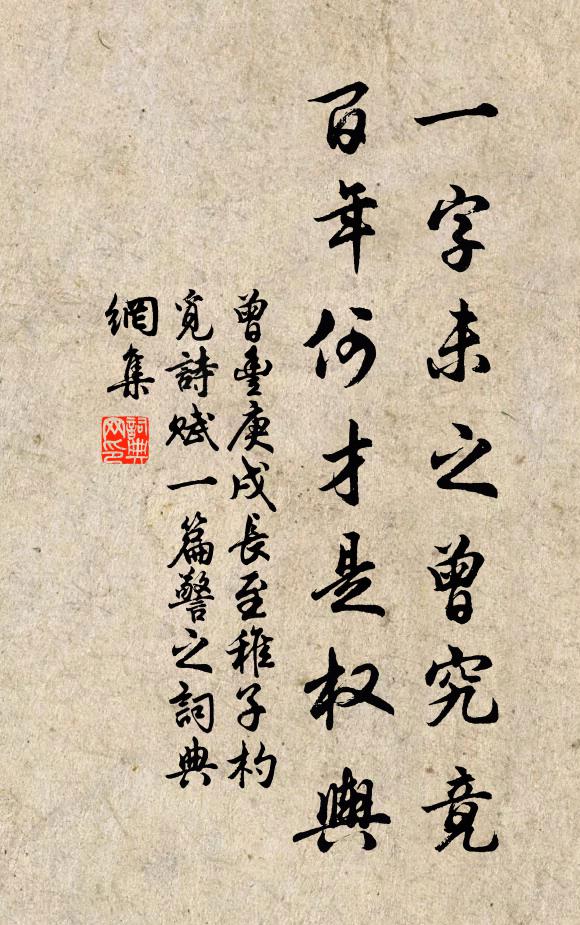 一字未之曾究竟
百年何才是权輿
曾豐庚戌長至稚子杓
覓詩賦一篇警之詞典
網集
詞典
网印